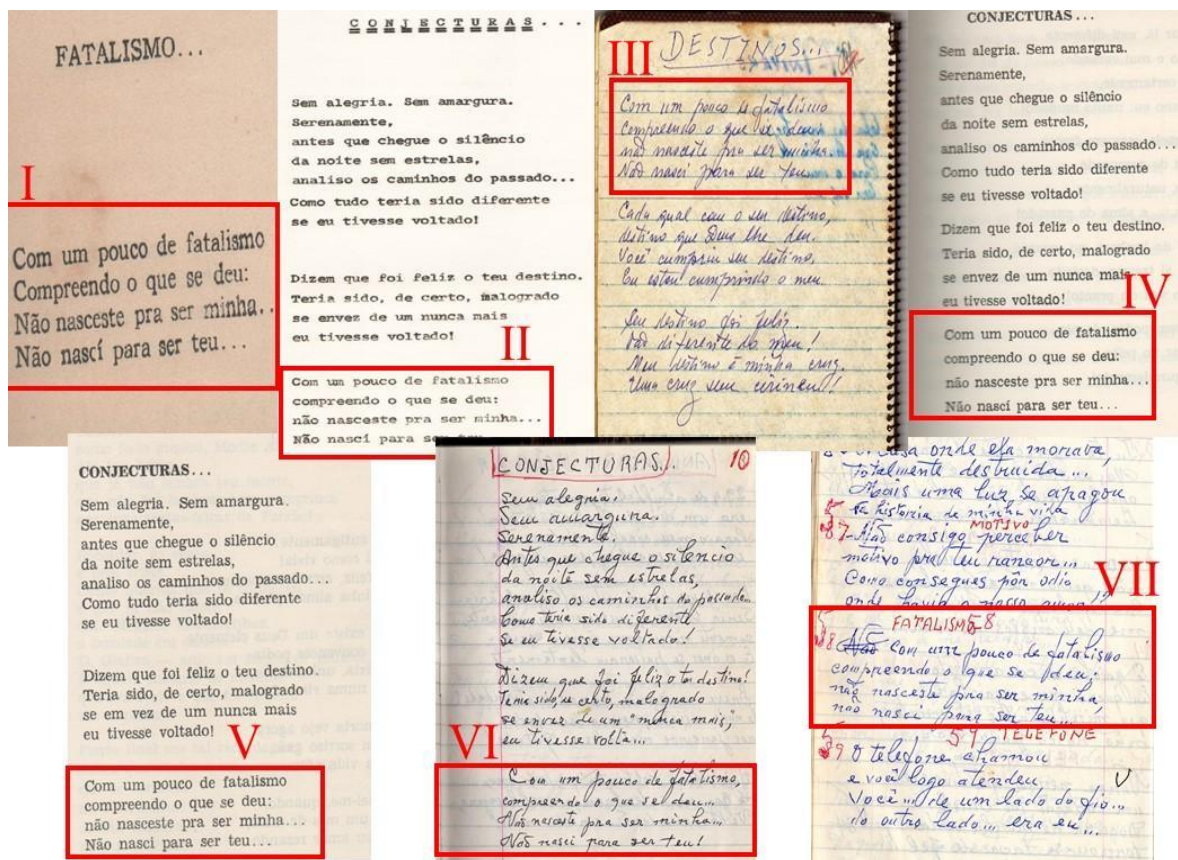 FATALISMO...
I
Com um pouco de fatalismo
Compreendo o que se deu:
Não nasceste pra ser minha..
Não nascí para ser teu...
CONJECTURAS...
Sem alegria. Sem amargura.
Serenamente,
antes que chegue o silêncio
da noite sem estrelas,
analiso os caminhos do passado...
Como tudo teria sido diferente
se eu tivesse voltado!
Dizem que foi feliz o teu destino.
Teria sido, de certo, malogrado
se envez de um nunca mais
eu tivesse voltado!
II
Com um pouco de fatalismo
compreendo o que se deu:
não nasceste pra ser minha...
Não nascí para ser teu
III
DESTINOS...
Com um pouco de fatalismo
compreendo o que se deu
não nasceste pra ser minha
Não nasci para ser teu
Cada qual com o seu destino,
destino que Deus lhe deu.
Você cumpriu seu destino,
Eu estou cumprindo o meu.
Seu destino foi feliz.
Tão diferente do meu!
Meu destino é minha cruz.
Uma cruz sem cirineu!
CONJECTURAS...
Sem alegria. Sem amargura.
Serenamente,
antes que chegue o silêncio
da noite sem estrelas,
analiso os caminhos do passado...
Como tudo teria sido diferente
se eu tivesse voltado!
Dizem que foi feliz o teu destino.
Teria sido, de certo, malogrado
se envez de um nunca mais
eu tivesse voltado!
IV
Com um pouco de fatalismo
compreendo o que se deu:
não nasceste pra ser minha...
Não nascí para ser teu...
CONJECTURAS...
Sem alegria. Sem amargura.
Serenamente,
antes que chegue o silêncio
da noite sem estrelas,
analiso os caminhos do passado...
Como tudo teria sido diferente
se eu tivesse voltado!
Dizem que foi feliz o teu destino.
Teria sido, de certo, malogrado
se em vez de um nunca mais
eu tivesse voltado!
V
Com um pouco de fatalismo
compreendo o que se deu:
não nasceste pra ser minha...
Não nasci para ser teu...
CONJECTURAS... 10
Sem alegria.
Sem amargura.
Serenamente.
Antes que chegue o silencio
da noite sem estrelas,
analiso os caminhos do passado...
Como teria sido diferente
se eu tivesse voltado!
Dizem que foi feliz o teu destino!
Teria sido, de certo, malogrado
se envez de um "nunca mais",
eu tivesse volta...
VI
Com um pouco de fatalismo,
compreendo o que se deu...
Não nasceste pra ser minha...
Não nasci para ser teu!
casa onde ela morava,
totalmente destruida...
Mais uma luz se apagou
na historia de minha vida
MOTIVO
87-Não consigo perceber
motivo pra teu rancor...
Como consegues pôr odio
onde havia o nosso amor!?
VII
FATALISMO 58
88 Não Com um pouco de fatalismo
compreendo o que se deu;
não nasceste pra ser minha,
não nasci para ser teu...
59 TELEFONE
89 O telefone chamou
e você logo atendeu
Você... de um lado do fio...
do outro lado... era eu...